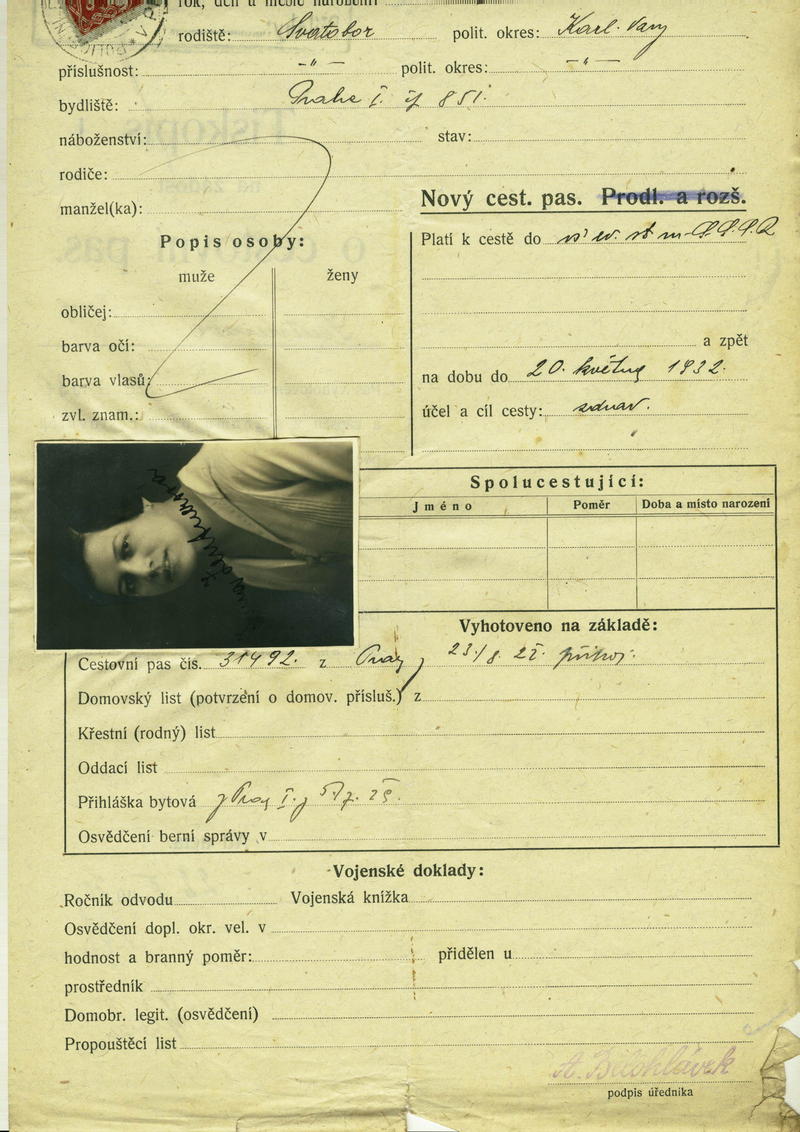 rok, den a měsíc narození
rodiště: Svatobor polit. okres: Karl. Vary
příslušnost: -"- polit. okres: -"-
bydliště: Praha I. čp 851.
náboženství: stav:
rodiče:
manžel(ka):
Nový cest. pas. Prodl. a rozš.
Popis osoby:
Platí k cestě do
muže ženy
obličej:
barva očí:
a zpět
barva vlasů:
na dobu do 20. května 1932.
zvl. znam.:
účel a cíl cesty:
Spolucestující:
Jméno Poměr Doba a místo narození
Vyhotoveno na základě:
Cestovní pas čís. 31492. z Prahy 23/8. 27.
Domovský list (potvrzení o domov. přísluš.) z
Křestní (rodný) list
Oddací list
Přihláška bytová
Osvědčení berní správy v
Vojenské doklady:
Ročník odvodu Vojenská knížka
Osvědčení dopl. okr. vel. v
hodnost a branný poměr: přidělen u
prostředník
Domobr. legit. (osvědčení)
Propouštěcí list
A. Bělohlávek
podpis úředníka